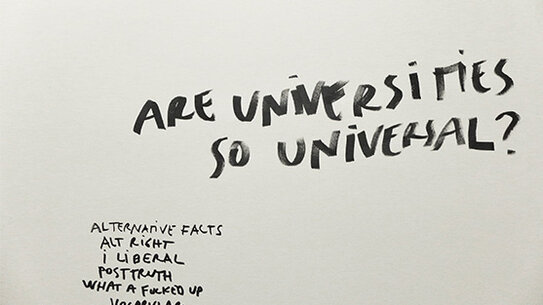 ARE UNIVERSITIES
SO UNIVERSAL?
ALTERNATIVE FACTS
ALT RIGHT
i LIBERAL
POSTTRUTH
WHAT A FUCKED UP